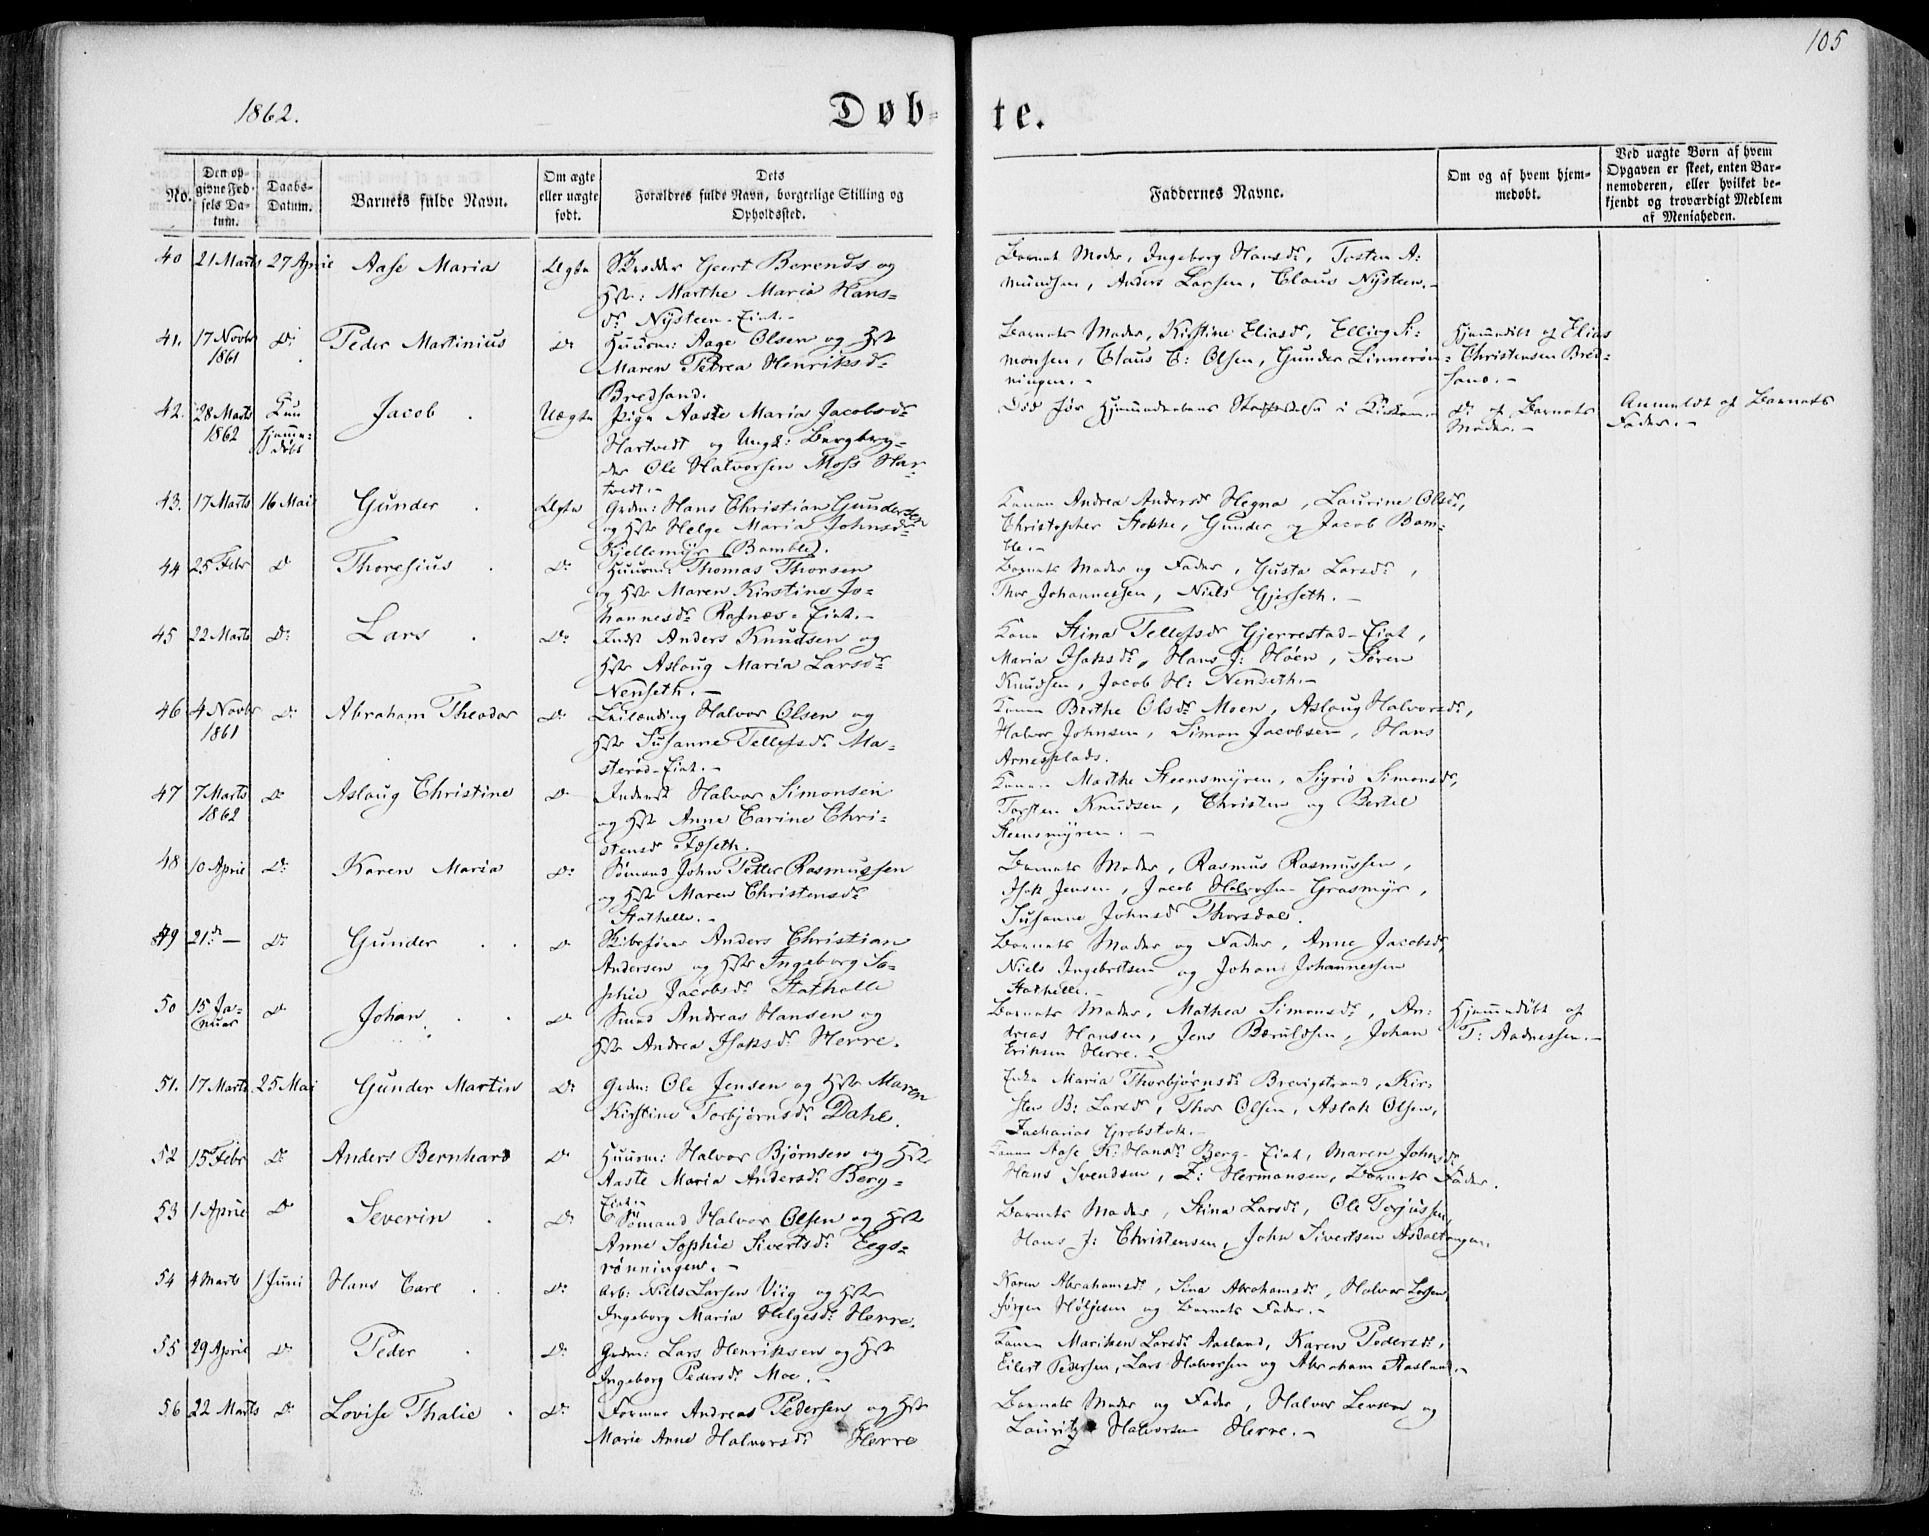 105
1862.
Døb-
te.
No.
Den op
givne Fød
sels Da-
tum.
Daabs-
Datum.
Barnets fulde Navn.
Om ægte
eller uægte
født.
Dets
Forældres fulde Navn, borgerlige Stilling og
Opholdssted.
Faddernes Navne.
Om og af hvem hjem-
medøbt.
Ved uægte Børn af hvem
Opgaven er skeet, enten Bar-
nemoderen, eller hvilket be-
kjendt og troværdigt Medlem
af Menigheden.
40 21 Marts 27 April Aase Maria Ægte Skrædder Geert Berends og
Hst: Marthe Maria Hans-
dr Nysteen-Eiet.-
Barnets Moder, Ingeborg Hansdr, Tosten A:
mundsen, Anders Larsen, Claus Nysteen.-
41. 17 Novbr
1861 Do Peder Martinius Do Huusm: Aage Olsen og Hst
Maren Petrea Henriksdr
Bredsand.
Barnets Moder, Kirstine Eliasdr, Elling Si-
monsen, Claus C: Olsen, Gunder Linnerøn-
ningen.-
Hjemmedøbt af Elias
Christensen Bred-
sand.-
42. 28 Marts
1862 Kun
Hjemme-
døbt Jacob Uægte Pige Aaste Maria Jacobsdr
Hartvedt og Ungk:
der Ole Halvorsen Moss Har-
tvedt.-
Død før Hjemmedaabens Stadfæstelse i Kirken.-
Do af Barnets
Moder.-
Anmeldt af Barnets
Fader.-
43. 17 Marts 16 Mai Gunder Ægte Grdm: Hans Christian Gundersen
og Hst Helge Maria Johnsdr
Kjellemyr (Bamble).
Konen Andrea Andersdr Hegna, Laurine Olsdr,
Christopher Stokke, Gunder og Jacob Bam-
ble.-
44 25 Febr Do Thoresius Do Huusm: Thomas Thorsen
og Hst Maren Kirstine Jo-
hannesdr Rafnæs-Eiet.-
Barnets Moder og Fader, Gusta Larsdr,
Thor Johannessen, Niels Gjerseth.-
45 22 Marts Do Lars Do Inds Anders Knudsen og
Hst Aslaug Maria Larsdr
Nenseth.-
Kone Stina Tellefsdr Gjerrestad-Eiet,
Maria Isaksdr, Hans J: Høen, Søren
Knudsen, Jacob H: Nenseth.-
46 4 Novbr
1861 Do Abraham Theodor Do Leilænding Halvor Olsen og
Hst Susanne Tellefsdr Ma-
sterød-Eiet.-
Konen Berthe Olsdr Moen, Aslaug Halvorsdr,
Halvor Johnsen, Simon Jacobsen, Hans
Arnesplads.
47 7 Marts
1862 Do Aslaug Christine Do Inderst Halvor Simonsen
og Hst Anne Carine Chri-
stensdr Foseth.
Konen Marthe Steensmyren, Sigrid Simonsdr,
Torsten Knudsen, Christen og Bertel
Steensmyren.-
48 10 April Do Karen Maria Do Sømand John Petter Rasmussen
og Hst Maren Christensdr
Stathelle.-
Barnets Moder, Rasmus Rasmussen,
Isak Jensen, Jacob Halvorsen Grasmyr,
Susanne Johnsdr Thorsdal.
49 21de - Do Gunder Do Skibsfører Anders Christian
Andersen og Hst Ingeborg So-
phie Jacobsdr Stathelle
Barnets Moder og Fader, Anne Jacobsdr,
Niels Ingebretsen og Johan Johannessen
Stathelle.-
50 15 Ja-
nuar Do Johan Do Smed Andreas Hansen og
Hst Andrea Isaksdr Herre.
Barnets Moder, Mathea Simonsdr, An-
dreas Hansen, Jens Bærulfsen, Johan
Eriksen Herre.-
Hjemmedøbt af
T: Aadnessen.-
51. 17 Marts 25 Mai Gunder Martin Do Grdm: Ole Jensen og Hst Maren
Kirstine Torbjørnsdr Dahl.
Enke Maria Thorbjørnsdr Brevigstrand, Kir-
sten B: Larsdr, Thor Olsen, Aslak Olsen,
Zacharias Grobstok.-
52 15 Febr Do Anders Bernhard Do Huusm: Halvor Bjørnsen og Hst
Aaste Maria Andersdr Berg-
Eiet.-
Konen Aase K: Hansdr Berg-Eiet, Maren Johnsdr
Hans Svendsen, Z: Hermansen, Barnets Fader.
53 1 April Do Severin Do Sømand Halvor Olsen og Hst
Anne Sophie Sivertsdr Eegs-
rønningen.-
Barnets Moder, Stina Larsdr, Ole Torjussen,
Hans J: Christensen, John Sivertsen Asdaltangen.
54 4 Marts 1 Juni Hans Carl Do Arb: Niels Larsen Viig og Hst
Ingeborg Maria Helgesdr Herre.
Karen Abrahamsdr, Sina Abrahamsdr, Halvor Larsen,
Jørgen Høljesen og Barnets Fader.-
55 29 April Do Peder Do Grdm: Lars Henriksen og Hst
Ingeborg Pedersdr Moe.-
Konen Mariken Larsdr Aasland, Karen Pedersdr,
Eilert Pedersen, Lars Halvorsen og Abraham Aasland.-
56 22 Marts Do Lovise Thalie Do Former Andreas Pedersen og Hst
Marie Anne Halvorsdr Herre
Barnets Moder og Fader, Halvor Levsen og
Lauritz Halvorsen Herre.-